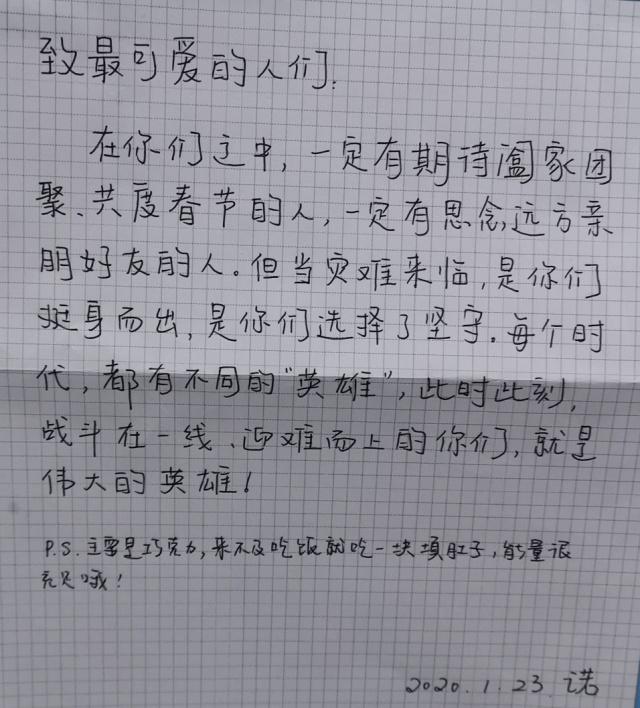 致最可爱的人们:
在你们之中,一定有期待阖家团
聚、共度春节的人,一定有思念远方亲
朋好友的人。但当灾难来临,是你们
挺身而出,是你们选择了坚守。每个时
代,都有不同的“英雄”,此时此刻,
战斗在一线、迎难而上的你们,就是
伟大的英雄!
P.S.主要是巧克力,来不及吃饭就吃一块填肚子,能量很
充足哦!
2020.1.23 诺